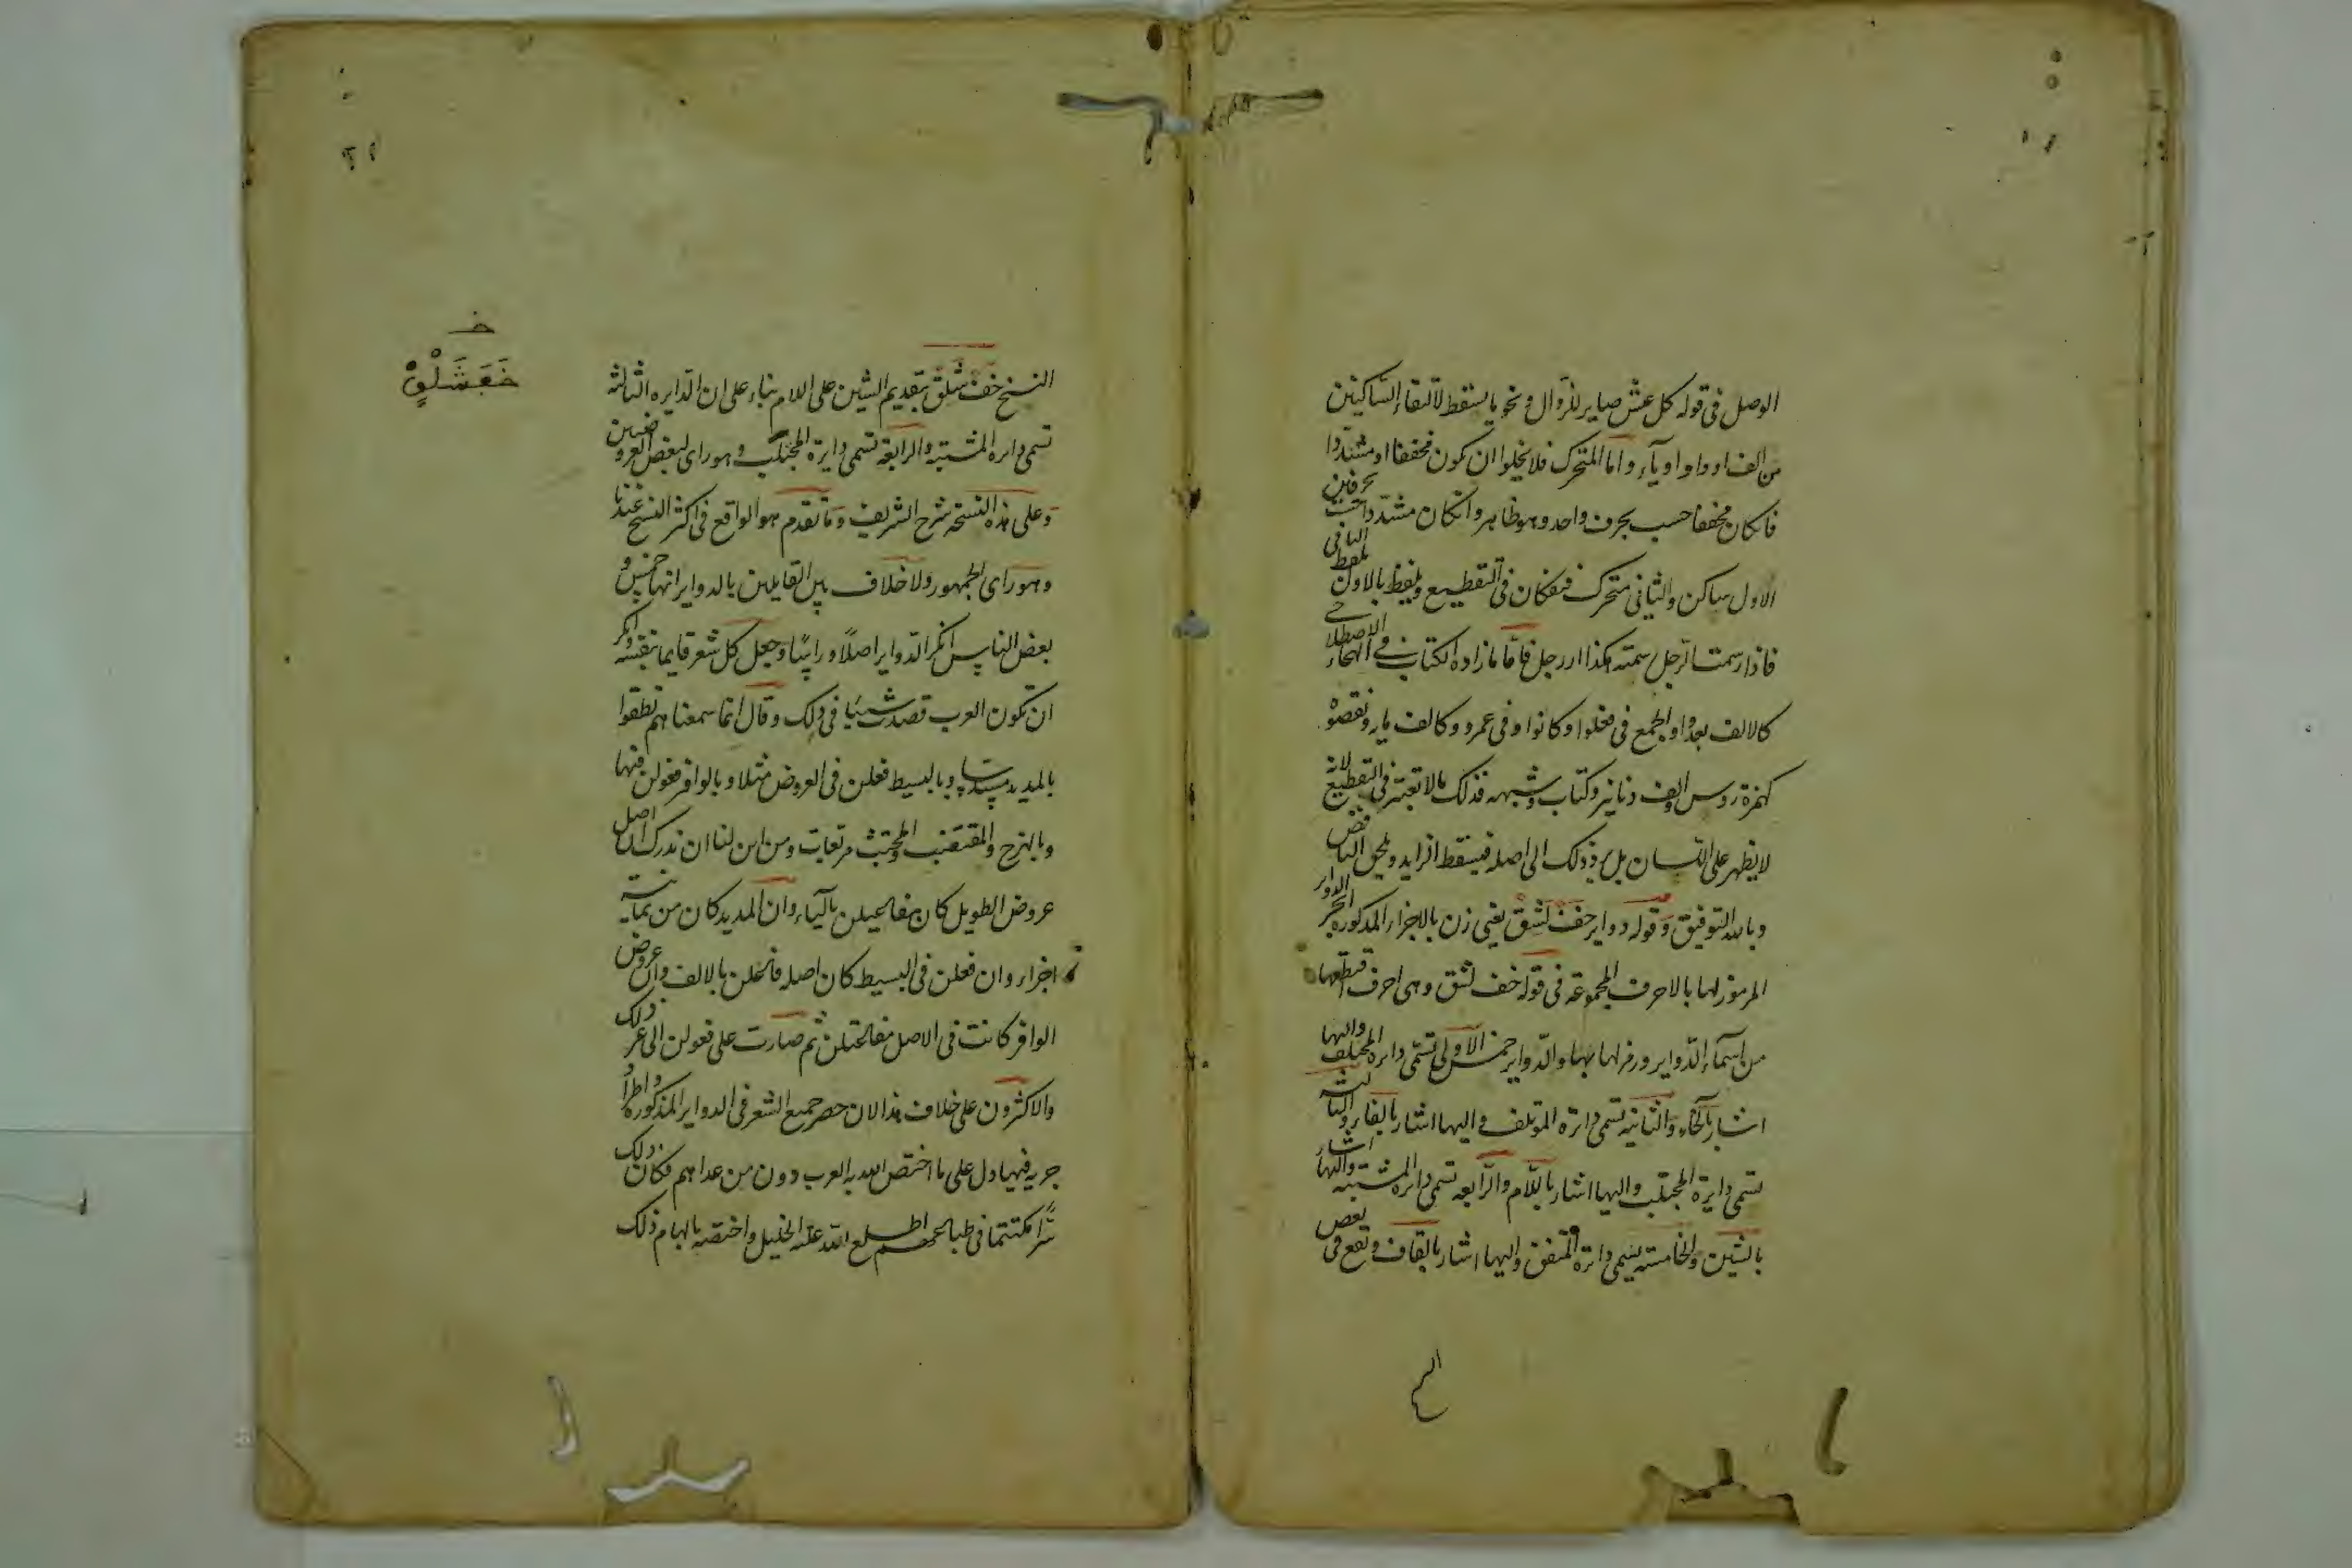 الوصل فى قوله كل عش صاير للزوال ونحو ما يسقط لالتقاء الساكنين
من الف او واو او ياء واما المتحرك فلا يخلوا ان يكون مخففا او مشددا
فان كان مخففا حسب بحرف واحد وهو ظاهر وان كان مشددا حسب بحرفين
الاول ساكن والثانى متحرك فيفكان فى التقطيع ويلفظ بالاول بلفظ الثانى
فاذا رسمت الرجل رسمته هكذا اررجل فاما ما زاده الكتاب فى الهجاء الاصطلاحى
كالالف بعد واو الجمع فى فعلوا وكانوا وفى عمرو وكالف ونقصوه
كهمزة روس والف دنانير وكتاب وشبهه فذلك مالا تعتبر فى التقطيع لانه
لا يظهر على اللسان بل يرد ذلك الى اصله فيسقط الزايد ويلحق الناقص
وبالله التوفيق وقوله دواير خف لشق يعنى زن بالاجزاء المذكورة الدواير
المرموز لها بالاحرف المجموعة فى قوله خف لشق وهى احرف اقتطعها
من اسماء الدواير ورمز لها بها والدواير خمس الاولى تسمى دايرة المختلف واليها
اشار بالخاء والثانية تسمى دايرة المؤتلف واليها اشار بالفاء والثالثة
تسمى دايرة المجتلب واليها اشار باللام والرابعه تسمى دايرة المشتبه واليها اشار
بالشين والخامسة يسمى دايرة المتفق واليها اشار بالقاف وتقع فى بعض
النسخ خف شلق بتقديم الشين على اللام بناء على ان الدايره الثالثة
تسمى دايره المشتبه والرابعه تسمى دايرة المجتلب وهو راى لبعض العروضيين
وعلى هذه النسخه شرح الشريف وما تقدم هو الواقع فى اكثر النسخ عندنا
وهو راى الجمهور ولا خلاف بين القايلين بالدواير انها خمس و
بعض الناس انكر الدواير اصلا وراسا وجعل كل شعر قايما بنفسه وانكر
ان تكون العرب قصدت شيئا فى ذلك وقال انما سمعناهم نطقوا
بالمديد مسدسا وبالبسيط فعلن فى العروض مثلا وبالوافر فعولن فيها
وبالهزج والمقتضب والمجتث مربعات ومن اين لنا ان ندرك ان اصل
عروض الطويل كان مفاعيلن بالياء وان المديد كان من ثمانية
اجزاء وان فعلن فى البسيط كان اصله فاعلن بالالف وان عروض
الوافر كانت فى الاصل مفاعلتن ثم صارت على فعولن الى غير ذلك
والاكثرون على خلاف هذا لان حصر جميع الشعر فى الدواير المذكورة واطراد
جريه فيها دل على ما اختص الله به العرب دون من عداهم فكان ذلك
سرا مكتتما فى طباعهم اطلع الله عليه الخليل واختصه بالهام ذلك
خفشلق